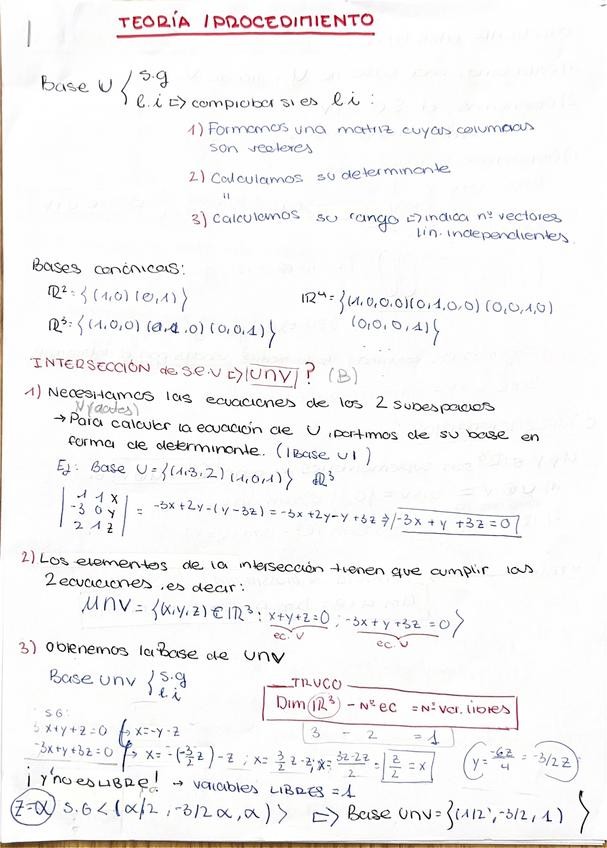 TEORÍA / PROCEDIMIENTO
Base U { s.g
l.i => comprobar si es l.i :
1) Formamos una matriz cuyas columnas
son vectores
2) Calculamos su determinante
"
3) Calculamos su rango => indica nº vectores
lin. independientes
Bases canónicas:
IR²={(1,0) (0,1)} IR⁴={(1,0,0,0)(0,1,0,0) (0,0,1,0)
IR³={(1,0,0) (0,1,0) (0,0,1)} (0,0,0,1)}
...
INTERSECCIÓN de S.E.V => |UNV| ? (B)
1) Necesitamos las ecuaciones de los 2 subespacios
→ Para calcular la ecuación de U, partimos de su base en
forma de determinante. (|Base U|)
Ej: Base U={(1,-3,2) (1,0,1)} IR³
| 1 1 x |
| -3 0 y | = -3x+2y-(y-3z) = -3x+2y-y+3z => -3x+y+3z=0
| 2 1 z |
2) Los elementos de la intersección tienen que cumplir las
2 ecuaciones, es decir:
UNV={(x,y,z)∈IR³: x+y+z=0 ; -3x+y+3z=0}
ec. V ec. U
3) Obtenemos la Base de UNV
Base UNV { s.g
l.i
TRUCO
Dim IR³ - Nº ec = Nº var. libres
3 - 2 = 1
SG:
x+y+z=0 → x=-y-z
-3x+y+3z=0 → x=-(-3/2 z)-z ; x=3/2 z-z; x=3z-2z/2 = z/2 = x y=-6z/4 = -3/2 z
¡ y no es LIBRE! → variables LIBRES = 1
z=α S.G<(α/2, -3/2α, α)> => Base UNV={(1/2, -3/2, 1)}